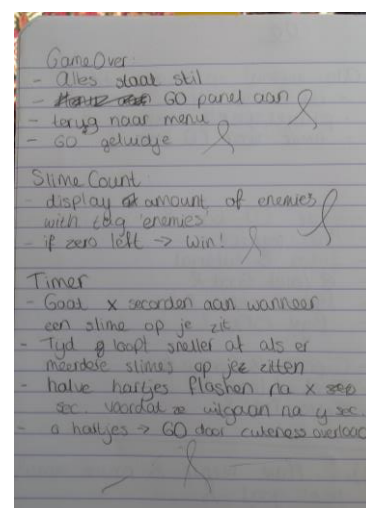 GameOver:
- Alles staat stil
- GO panel aan
- terug naar menu
- GO geluidje
Slime Count
- display amount of enemies
with tag 'enemies'
- if zero left → Win!
Timer
- Gaat x seconden aan wanneer
een slime op je zit
- Tyd loopt sneller af als er
meerdere slimes op je zitten
- halve hartjes flashen na x
sec. voordat ze uitgaan na y sec.
- 0 hartjes → GO door cuteness overload